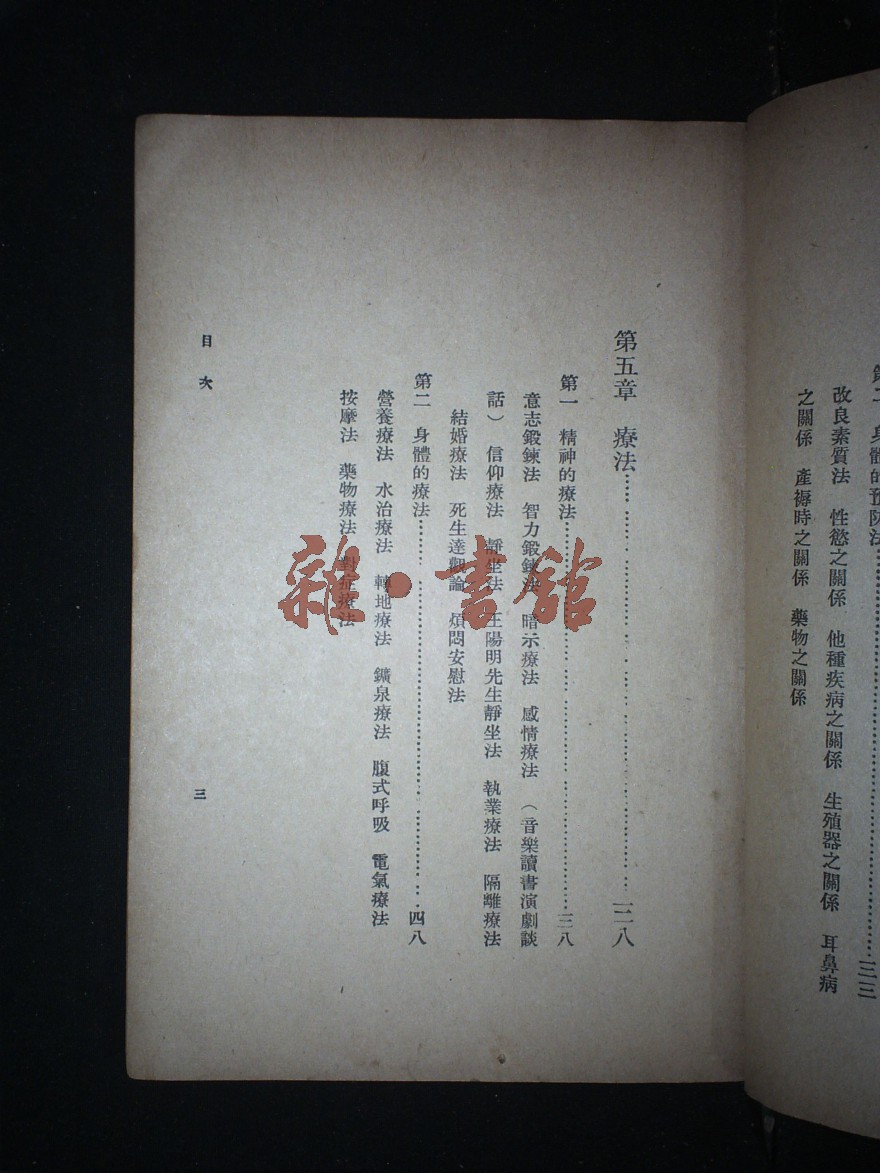 第二 身體的預防法……三三
改良素質法 性慾之關係 他種疾病之關係 生殖器之關係 耳鼻病
之關係 產褥時之關係 藥物之關係
第五章 療法……三八
第一 精神的療法……三八
意志鍛鍊法 智力鍛鍊法 暗示療法 感情療法 (音樂讀書演劇談
話) 信仰療法 靜坐法 王陽明先生靜坐法 執業療法 隔離療法
結婚療法 死生達觀論 煩悶安慰法
第二 身體的療法……四八
營養療法 水治療法 轉地療法 鑛泉療法 腹式呼吸 電氣療法
按摩法 藥物療法 對症療法
目次
三
雜·書館